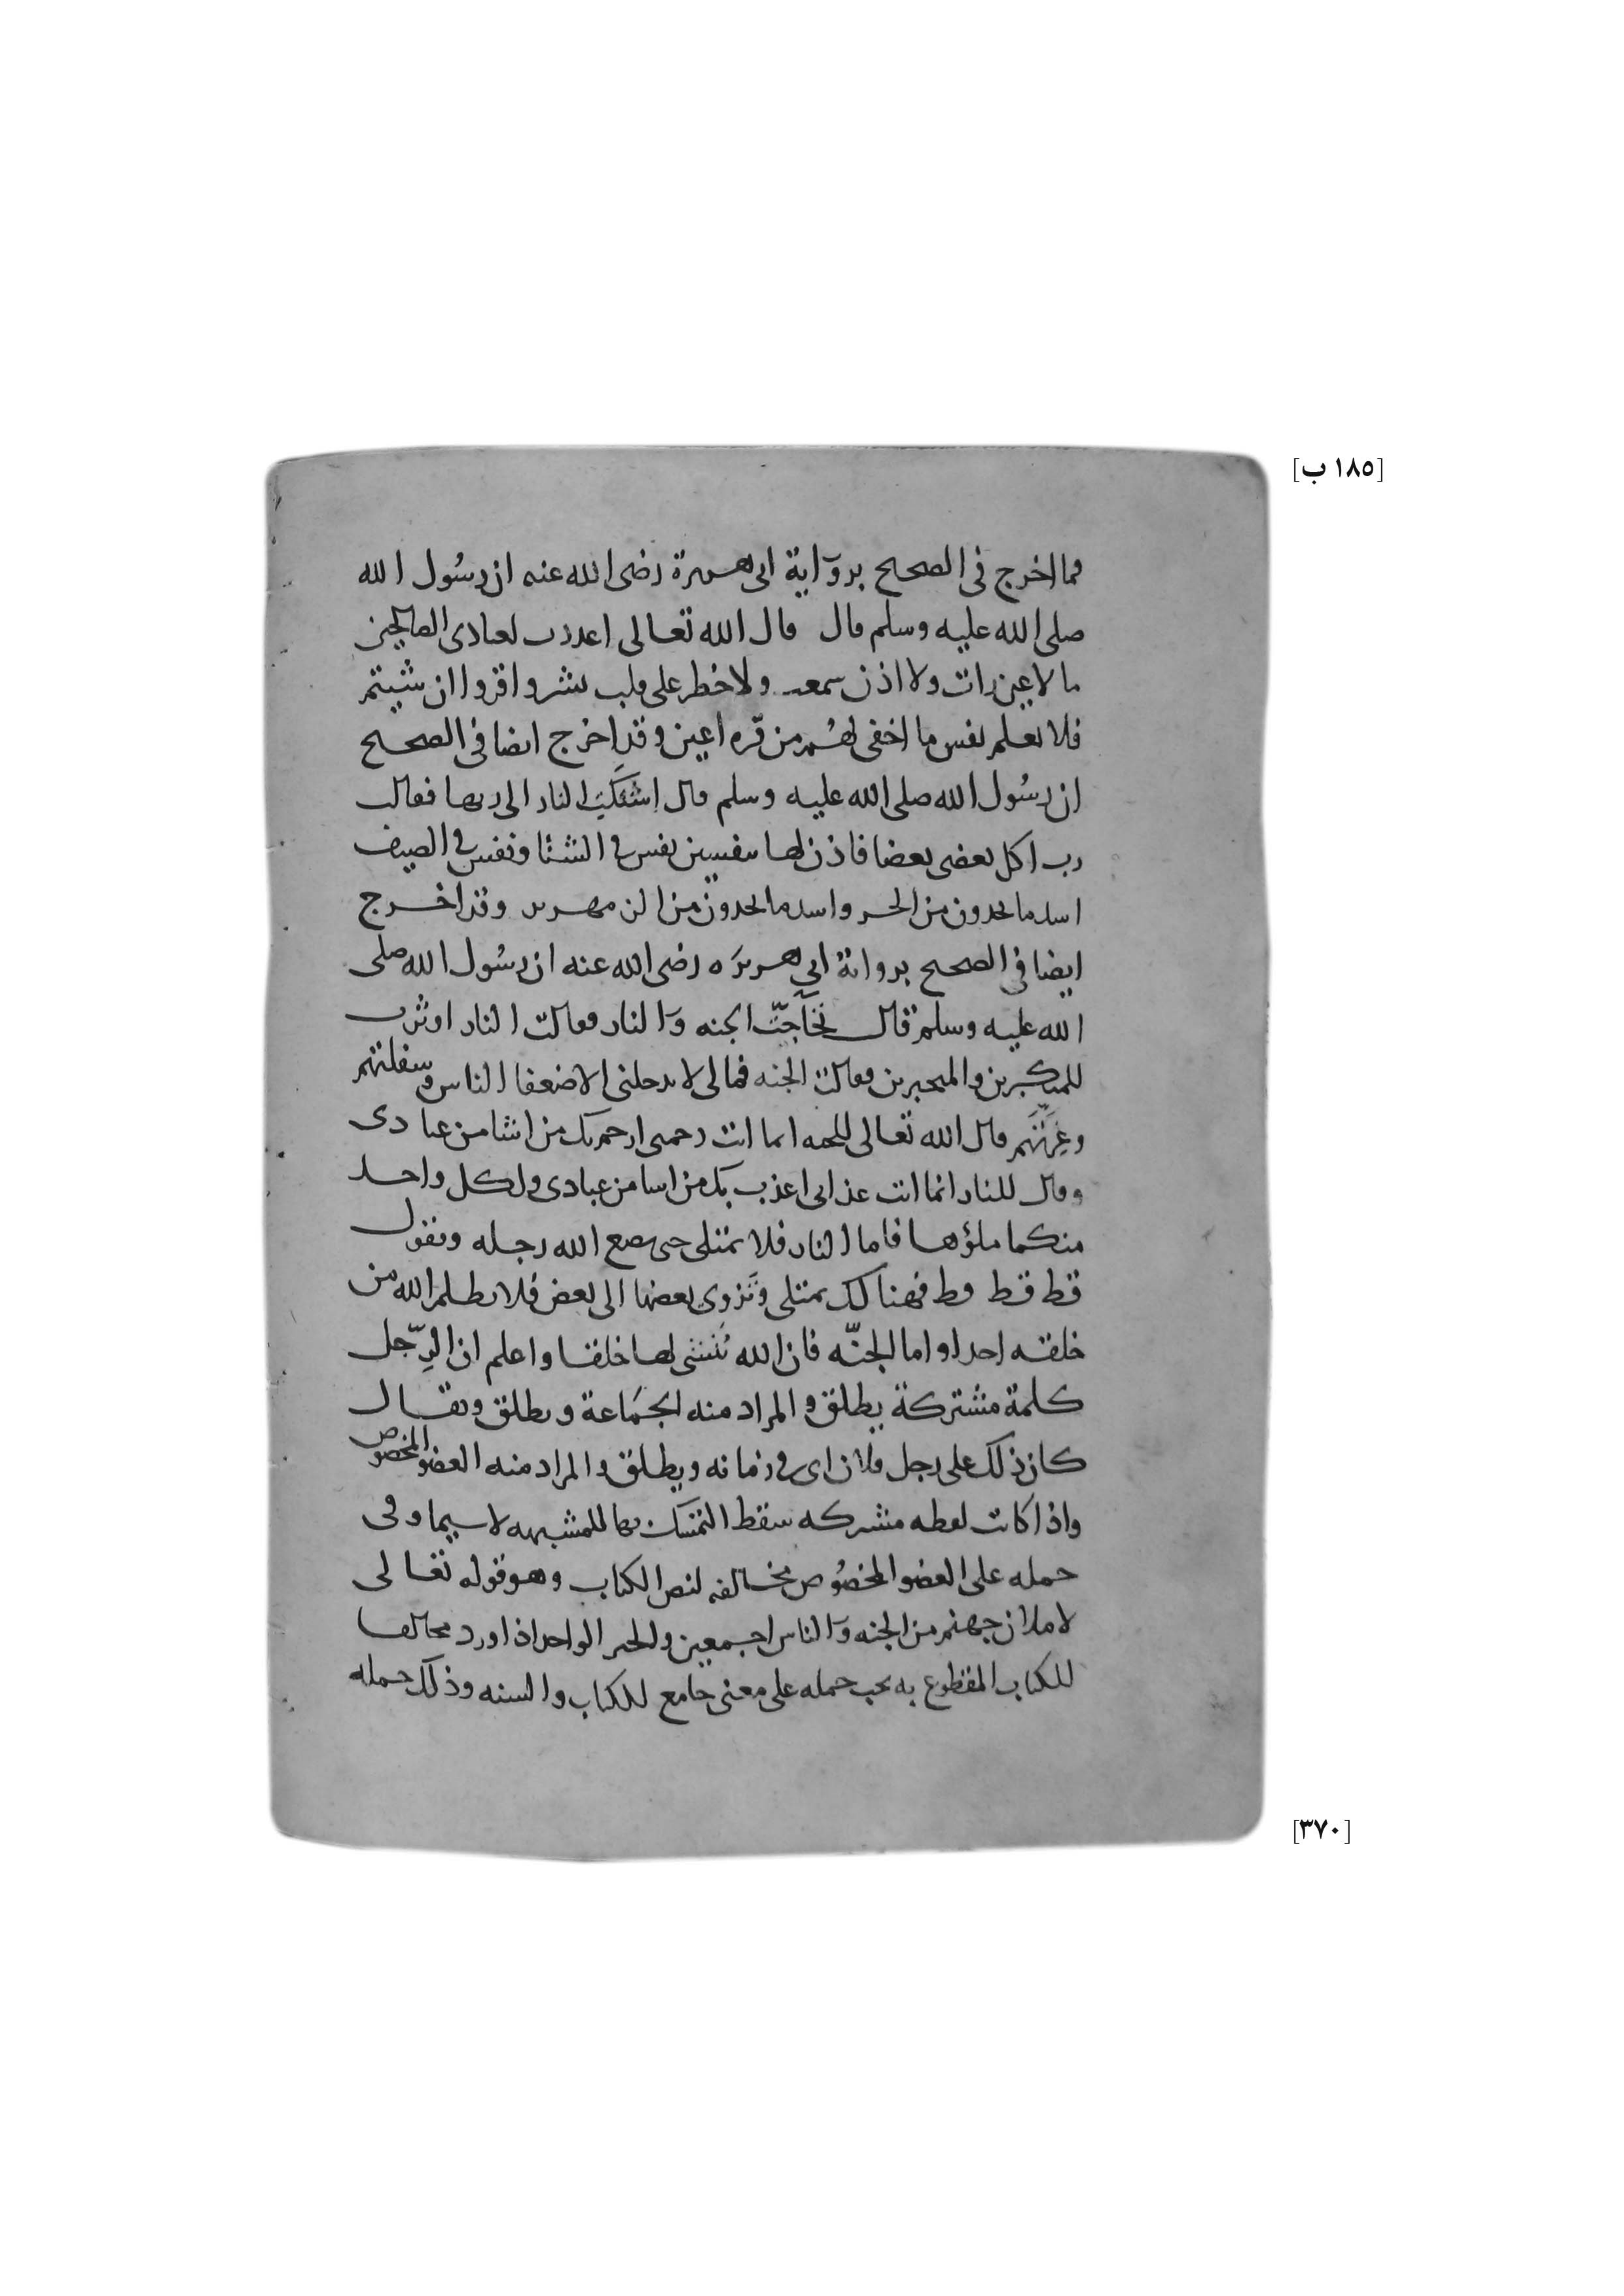 [١٨٥ ب]
فما اخرج فى الصحيح برواية ابى هريرة رضى الله عنه ان رسُول الله
صلى الله عليه وسلم قال قال الله تعالى اعددت لعبادى الصالحين
ما لا عين رات ولا اذن سمعت ولا خطر على قلب بشر واقروا ان شيتم
فلا تعلم نفس ما اخفى لهُم من قرّه اعين وقد اخرج ايضا فى الصحيح
ان رسُول الله صلى الله عليه وسلم قال اشتكَت النار الى ربها فقالت
رب اكل بعضى بعضا فاذن لها بنفسين نفس فى الشتا ونفس فى الصيف
اشد ما تجدون من الحر واشد ما تجدون من الزمهرير وقد اخرج
ايضا فى الصحيح برواية ابي هريرَه رضى الله عنه ان رسُول الله صلى
الله عليه وسلم قال تحَاجّت الجنه وَالنار فقالت النار اوثرت
للمتكبرين والمتجبرين فقالت الجنه فمالى لا يدخلنى الا ضعفا الناس وسفلتهم
وغِرّتَهُم قال الله تعالى للجنه انما انت رحمتى ارحم بك من اشا من عبادى
وقال للنار انما انت عذابى اعذب بك من اشا من عبادى ولكل واحد
منكما ملؤها فاما النار فلا تمتلى حتى يضع الله رجله وتقول
قط قط قط فهنالك تمتلى وَتزوى بعضها الى بعض فلا يظلم الله من
خلقه احدا واما الجنّه فان الله يُنشى لها خلقا واعلم ان الرِّجل
كلمة مشتركة يطلق والمراد منه الجمَاعة ويطلق ويقال
كان ذلك على رجل فلان اى فى زمانه ويطلق والمراد منه العضو المخصوص
واذا كانت لفظه مشتركه سقط التمسّك بها للمشبهه لا سيما وفى
حمله على العضو المخصُوص مخالفه لنص الكتاب وهو قوله تعالى
لاملان جهنم من الجنه وَالناس اجمعين والخبر الواحد اذا ورد مخالفا
للكتاب المقطوع به يجب حمله على معنى جامع للكتاب والسنه وذلك حمله
[٣٧٠]